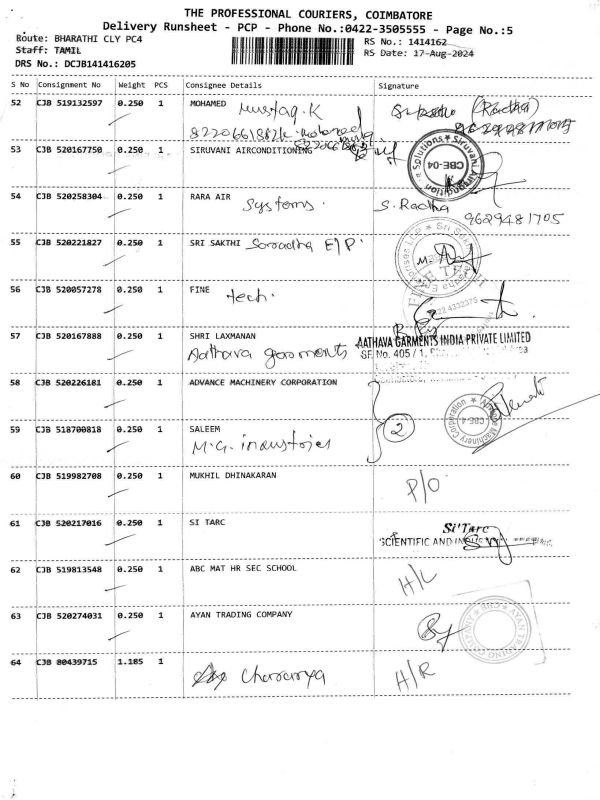 THE PROFESSIONAL COURIERS, COIMBATORE
Delivery Runsheet - PCP - Phone No.:0422-3505555 - Page No.:5
Route: BHARATHI CLY PC4 RS No.: 1414162
Staff: TAMIL RS Date: 17-Aug-2024
DRS No.: DCJB141416205
S No Consignment No Weight PCS Consignee Details Signature
52 CJB 519132597 0.250 1 MOHAMED Mustaq.K (Radha)
53 CJB 520167750 0.250 1 SIRUVANI AIRCONDITIONING
Solutions * Siruvani Aircondition
CBE-04
54 CJB 520258304 0.250 1 RARA AIR Systems. S. Radha
9629481705
55 CJB 520221827 0.250 1 SRI SAKTHI Sarradha E/P.
56 CJB 520057278 0.250 1 FINE tech.
57 CJB 520167888 0.250 1 SHRI LAXMANAN AATHAVA GARMENTS INDIA PRIVATE LIMITED
Aathava garments SF No. 405 / 1,
58 CJB 520226181 0.250 1 ADVANCE MACHINERY CORPORATION
2
59 CJB 518700818 0.250 1 SALEEM
M.G. industries
60 CJB 519982708 0.250 1 MUKHIL DHINAKARAN P/O
61 CJB 520217016 0.250 1 SI TARC Si'Tarc
SCIENTIFIC AND
62 CJB 519813548 0.250 1 ABC MAT HR SEC SCHOOL H/L
63 CJB 520274031 0.250 1 AYAN TRADING COMPANY
AYAN TRADING COMPANY * CBE
64 CJB 80439715 1.185 1 Charanya H/R